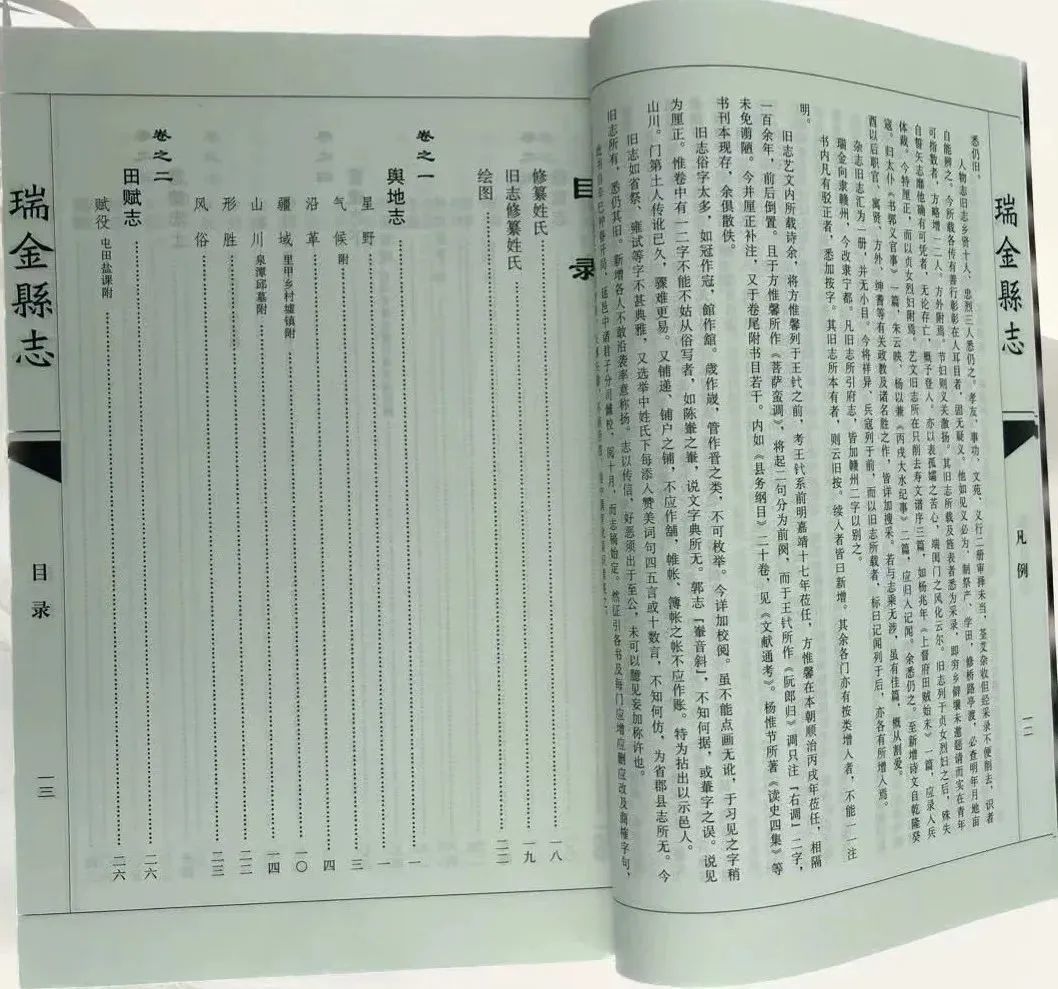 瑞金縣志
凡例
一二
悉仍旧。
人物志旧志乡贤十人、忠烈三人悉仍之。孝友、事功、文苑、义行二册审释未当，荃艾杂收但经采录不便削去，识者
自能辨之。今所载各传有善行彰彰在人耳目者，固无疑义。他如见义必为，制祭产、学田，修桥路亭渡，必查明年月地亩
可指数者，方略增一二人。方外附焉。节妇则又关激扬。其旧志所载及旌表者悉为采录，即穷乡僻壤未邀题请而实在青年
自誓矢志靡他确有可凭者，无论存亡，概予登入。亦以表孤嫠之苦心，端闺门之风化云尔。旧志列于贞女烈妇之后，殊失
体裁。今特厘正，而以贞女烈妇附焉。艺文旧志所在只削去寿文谱序三篇，如杨兆年《上督府田贼始末》一篇，应录入兵
寇。归太仆《书郭义官事》一篇，朱云映、杨以兼《丙戌大水纪事》二篇，应归入记闻。余悉仍之。至新增诗文自乾隆癸
酉以后职官、寓贤、方外、绅耆等有关政教及诸名胜之作，皆详加搜采。若与志乘无涉，虽有佳篇，概从割爱。
杂志旧志汇为一册，并无小目。今将祥异、兵寇列于前，而以旧志所载者，标曰记闻列于后，亦各有所增入焉。
瑞金向隶赣州，今改隶宁都。凡旧志所引府志，皆加赣州二字以别之。
书内凡有驳正者，悉加按字。其旧志所本有者，则云旧按。续人者皆曰新增。其余各门亦有按类增人者，不能一一注
明。
旧志艺文内所载诗余，将方惟馨列于王钎之前，考王钎系前明嘉靖十七年莅任，方惟馨在本朝顺治丙戌年莅任，相隔
一百余年，前后倒置。且于方惟馨所作《菩萨蛮调》，将起二句分为前阕，而于王钎所作《阮郎归》调只注「右调」二字，
未免谫陋。今并厘正补注，又于卷尾附书目若干。内如《县务纲目》二十卷，见《文献通考》。杨惟节所著《读史四集》等
书刊本现存，余俱散佚。
旧志俗字太多，如冠作冦，館作舘。歲作嵗，管作晋之类，不可枚举。今详加校阅。虽不能点画无讹，于习见之字稍
为厘正。惟卷中有一二字不能不姑从俗写者，如陈輋之輋，说文字典所无。郭志「輋音斜」，不知何据，或輂字之误。说见
山川。门第土人传讹已久，骤难更易。又铺递、铺户之铺，不应作舖，帷帐、簿帐之帐不应作账。特为拈出以示邑人。
旧志如省祭、雍试等字不甚典雅，又选举中姓氏下每添入赞美词句四五言或十数言，不知何仿，为省郡县志所无。今
旧志所有，悉仍其旧。新增各人不敢沿袭率意称扬。志以传信，好恶须出于至公，未可以臆见妄加称许也。
目录
修纂姓氏 一八
旧志修纂姓氏 一九
绘图 二二
卷之一
舆地志 一
星野 一
气候 附 三
沿革 四
疆域 里甲乡村墟镇附 一〇
山川 泉潭邱墓附 一四
形胜 二二
风俗 二三
卷之二
田赋志 二六
赋役 屯田盐课附 二六
瑞金縣志
目录
一三